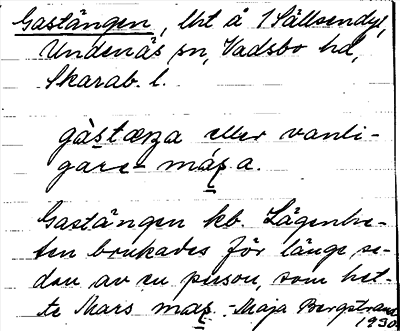 Gastängen, lht å 1 Sällsendyl,
Undenäs sn, Vadsbo hd,
Skarab. l.
gàstæŋa eller vanli-
gare máʂa.
Gastängen kb. Lägenhe-
ten brukades för länge se-
dan av en person, som het-
te Mars máʂ. - Maja Bergstrand
1930